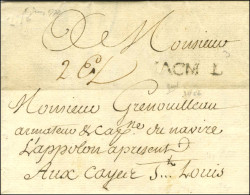 De Monsieur
JACMEL
Monsieur Grenouilleau
armateur & Cap.ne du navire
L'appolon apresent
Aux Cayes St Louis